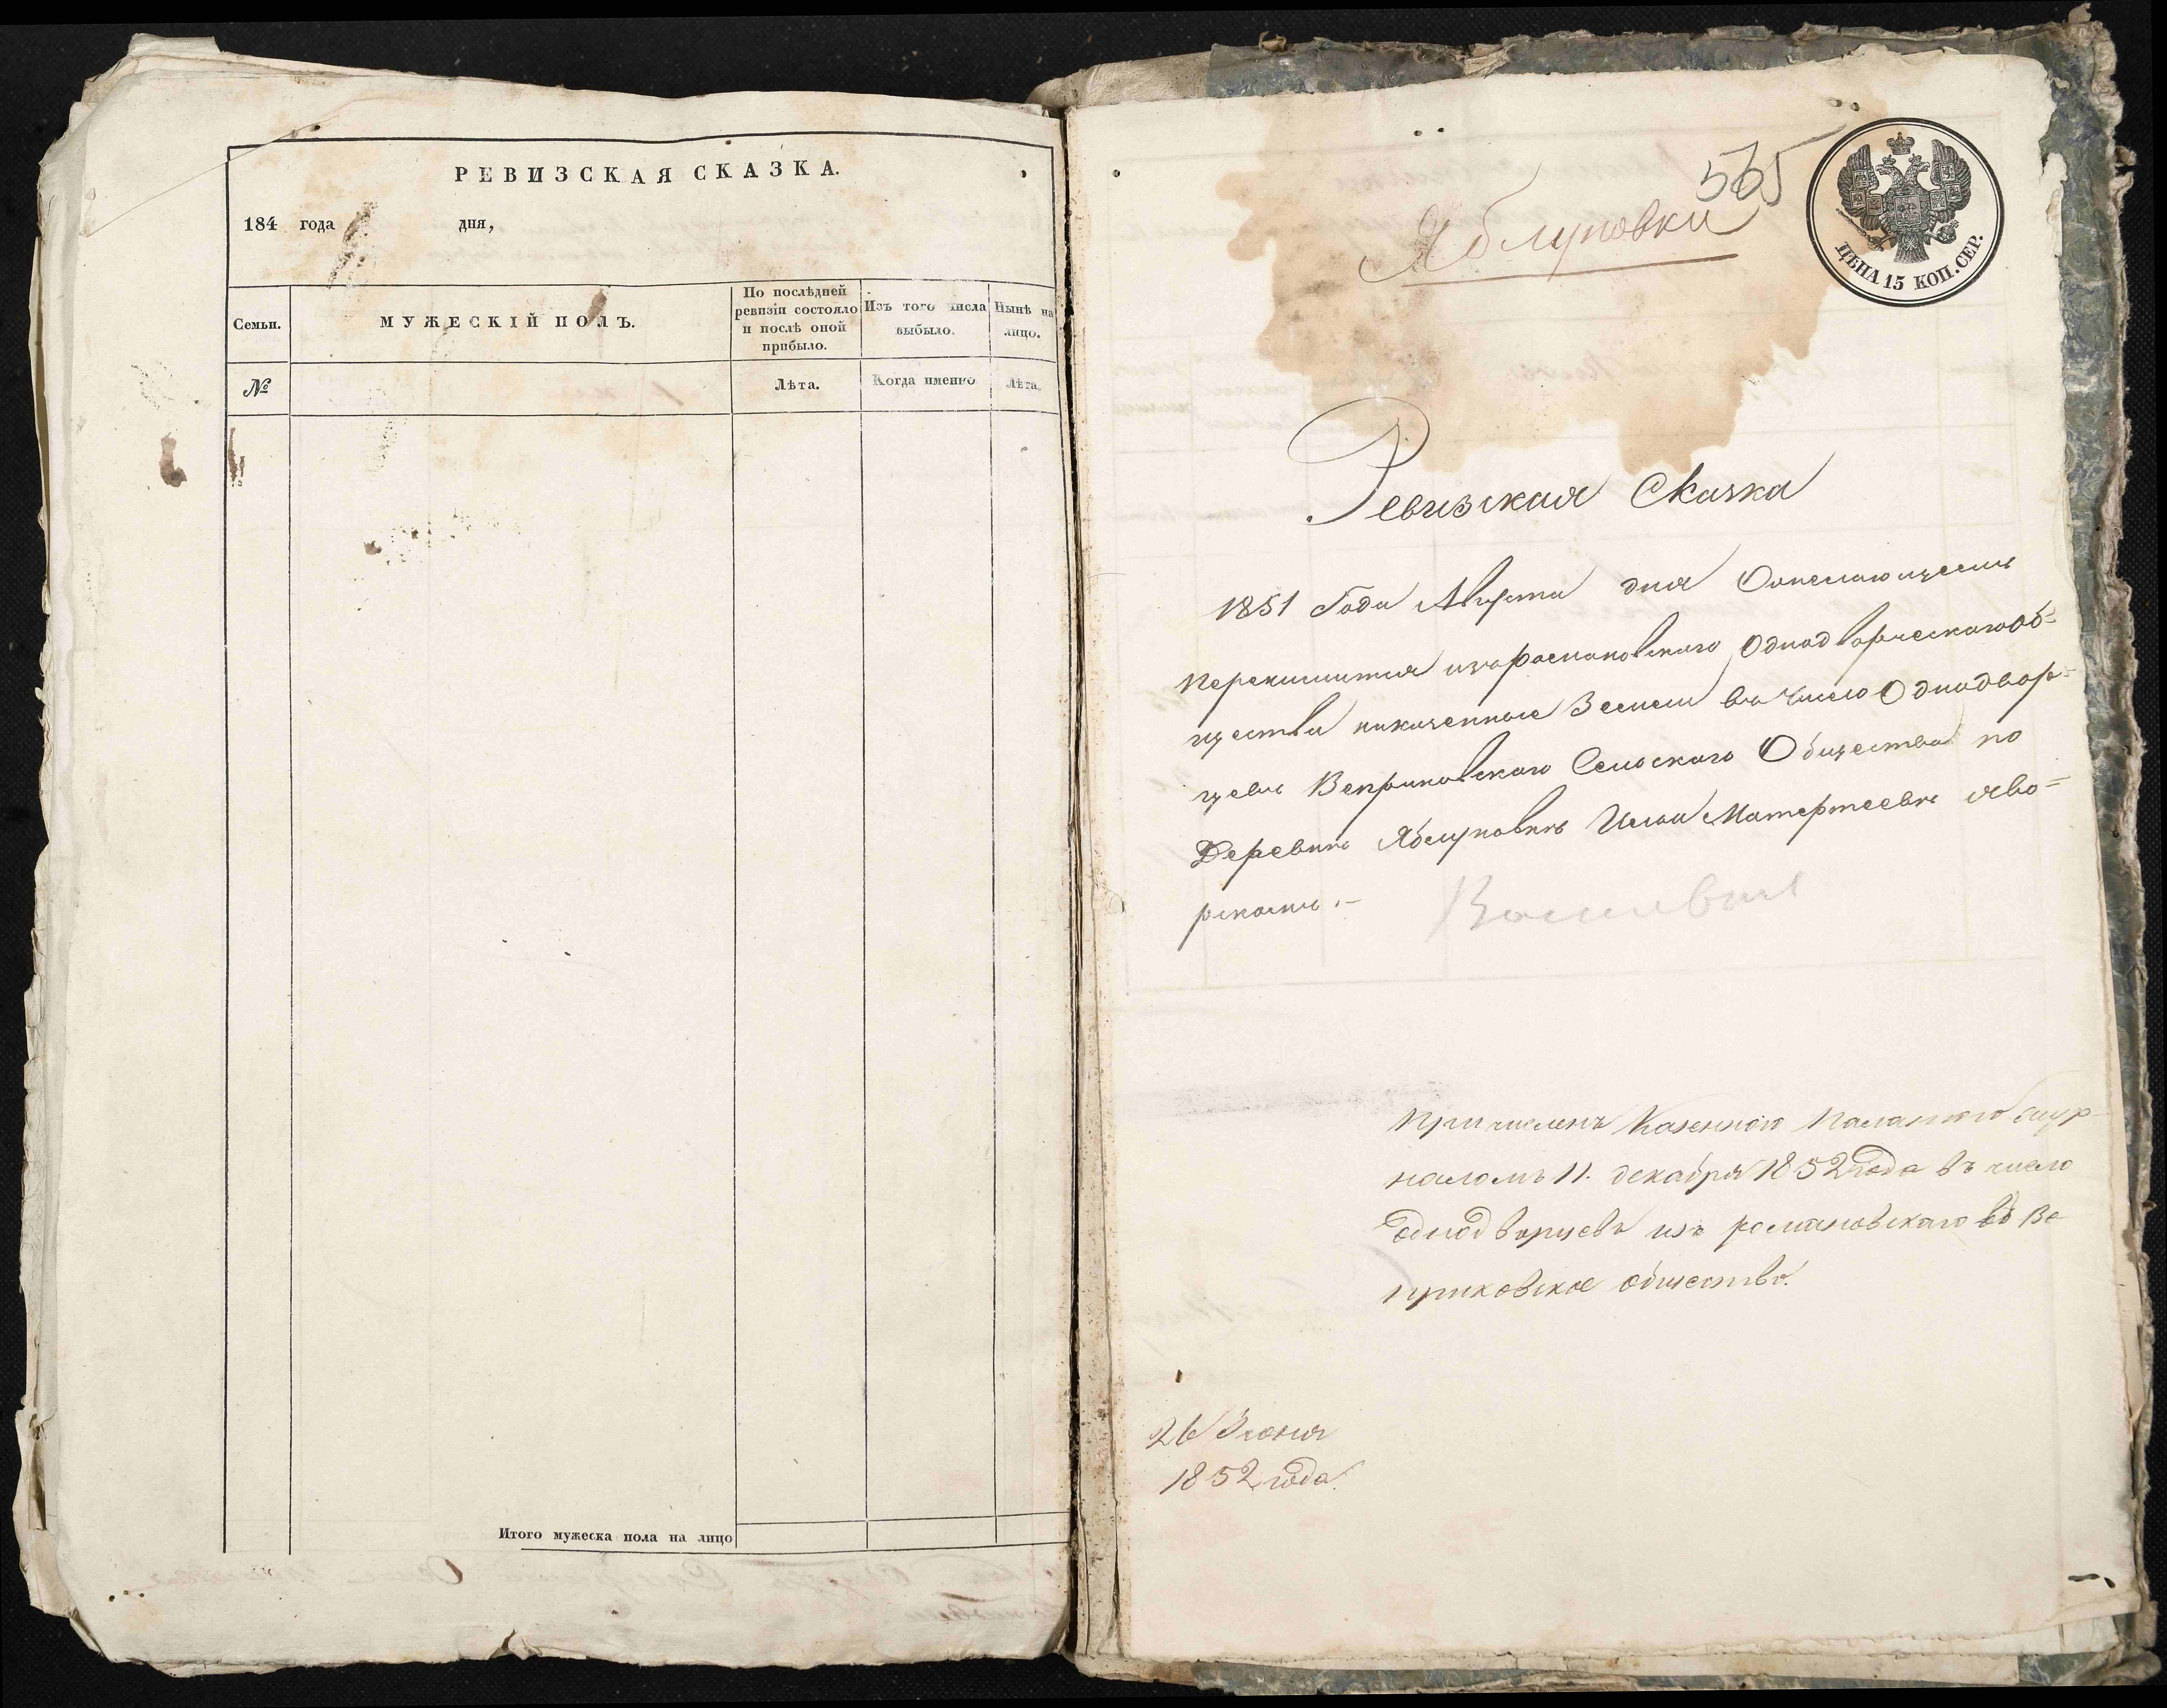 РЕВИЗСКАЯ СКАЗКА.
184 года дня,
Семьи. МУЖЕСКІЙ ПОЛЪ. По послѣдней ревизіи состояло и послѣ оной прибыло. Изъ того числа выбыло. Нынѣ на лицо.
№ Лѣта. Когда именно Лѣта.
Итого мужеска пола на лицо
565
Яблуновки
ЦѢНА 15 КОП. СЕР.
Ревизская Сказка
1851 Года Августа дня О
изъ романовскаго Однодворческаго Об=
щества казенныхъ Земель въ число Однодвор=
цевъ Веприковскаго Сельскаго Общества по
Деревнѣ Яблуновкѣ Явo=
рскомъ.–
Причисленъ Казенною Палатою жур
наломъ 11. декабря 1852 года въ число
однодворцевъ изъ романовскаго въ Ве
приковское общество.
26 Июня
1852 года.